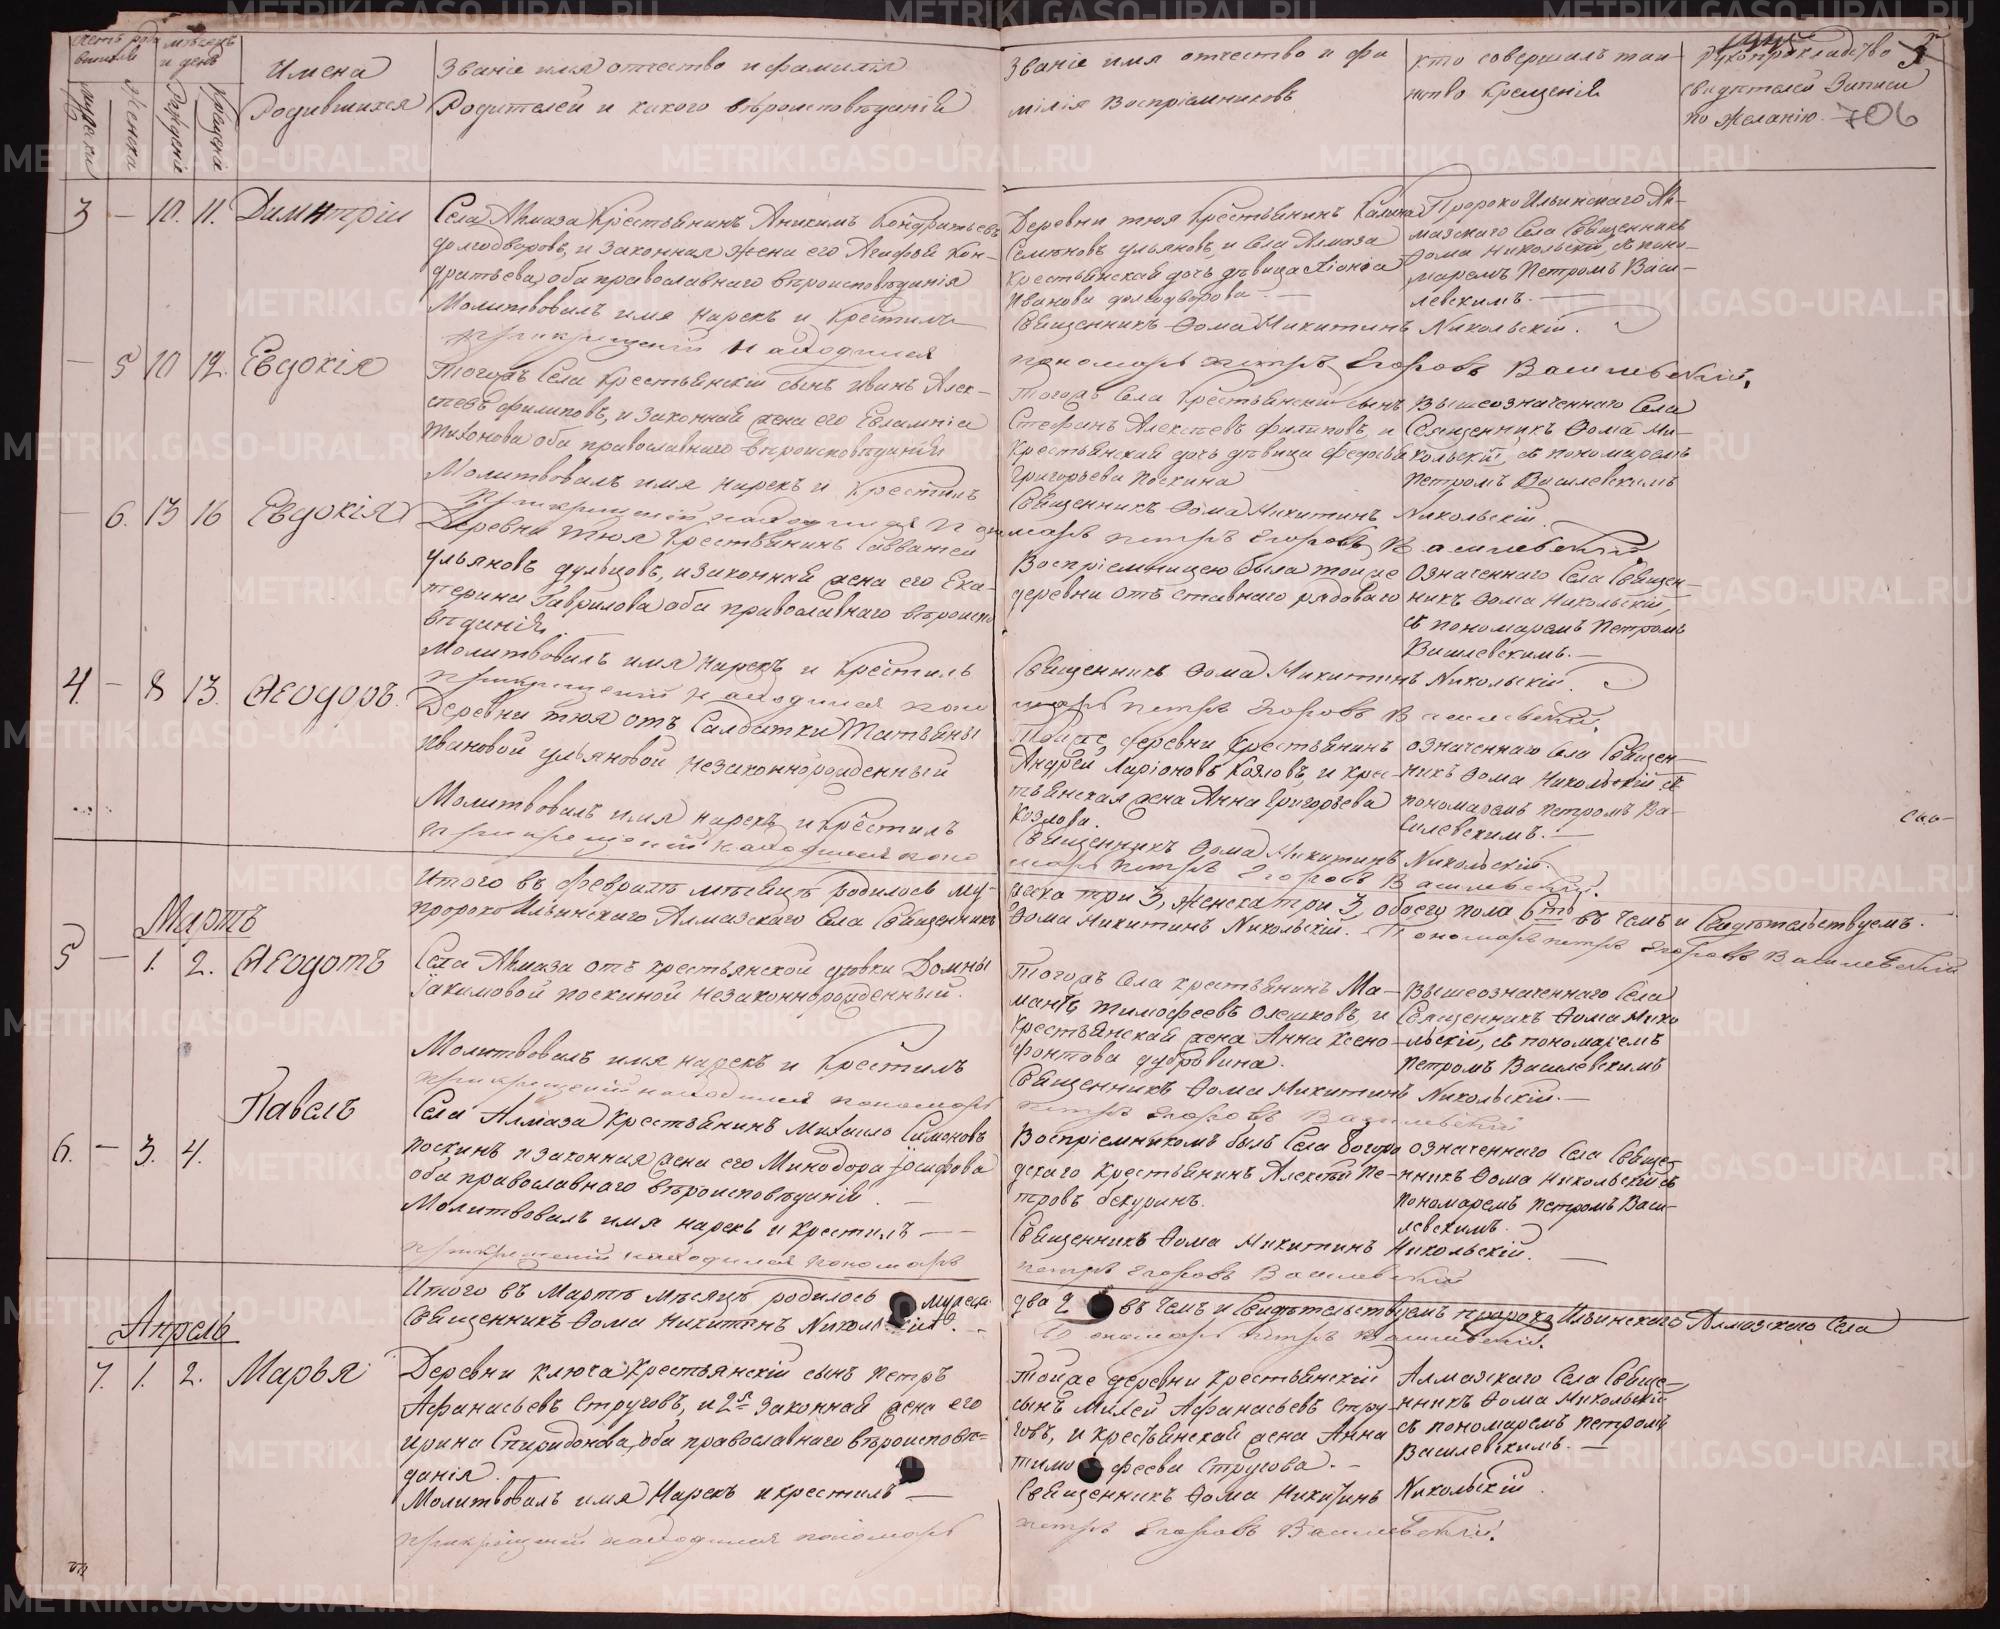 Счетъ роди
вшихся
Мѣсяцъ
и день
мужска
Женска
Рожденіе
Крещеніе
Имена
Родившихся
Званіе имя отчество и фамилія
Родителей и какого вѣроисповѣданія
Званіе имя отчество и фа
милія Воспріемниковъ
Кто совершалъ таи-
нство Крещенія
Рукоприкладство
свидѣтелей Записи
по желанію. 706
3 — 10. 11. Димитрій
Села Алмаза Крестьянинъ Аникимъ Кондратьевъ
долгодворовъ, и законная жена его Агафья Кон-
дратьева, оба православнаго вѣроисповѣданія
Молитвовалъ имя нарекъ и Крестилъ
прикрещеніи находился
Деревни тюя Крестьянинъ Калина
Семеновъ ульяновъ, и села Алмаза
Крестьянская дочь дѣвица
Иванова долгодворова. —
Священникъ Ѳома Никитинъ Никольскій.
пономарь петръ Егоровъ Василевскій.
Пророко Ильинскаго Ал-
мазскаго Села Священникъ
Ѳома Никольскій, съ поно-
маремъ Петромъ Васи-
левскимъ. —
— 5 10 12. Евдокія
Тогожъ Села Крестьянскій сынъ иванъ Алек-
сѣевъ филиповъ, и законная жена его Евлампіа
Тихонова оба православнаго вѣроисповѣданія
Молитвовалъ имя нарекъ и Крестилъ
прикрещеніи находился поно
Тогожъ Села Крестьянскій сынъ
Стефанъ Алексѣевъ филиповъ, и
Крестьянская дочь дѣвица Федосья
Григорьева Поскина
Священникъ Ѳома Никитинъ Никольскій.
марь петръ Егоровъ Василевскій
Вышеозначеннаго Села
Священникъ Ѳома Ни-
кольскій, съ пономаремъ
Петромъ Василевскимъ
— 6. 13 16 Евдокія
Деревни тюя Крестьянинъ Савватей
ульяновъ дульцовъ, и законная жена его Ека-
терина Гаврилова оба православнаго вѣроиспо
вѣданія.
Молитвовалъ имя нарекъ и Крестилъ
прикрещеніи находился поно
Воспріемницею была тойже
деревни отъ ставнаго рядоваго
Священникъ Ѳома Никитинъ Никольскій.
марь петръ Егоровъ Василевскій.
Означеннаго Села Священ-
никъ Ѳома Никольскій,
съ пономаремъ Петромъ
Василевскимъ. —
4. — 8 13. Ѳеодоръ.
Деревни тюя отъ Салдатки Татьяны
Ивановой ульяновой незаконнорожденный
Молитвовалъ имя нарекъ и крестилъ
прикрещеніи находился поно
Тойже деревни Крестьянинъ
Андрей Ларіоновъ Козловъ, и крес-
тьянская жена Анна Григорьева
Козлова.
Священникъ Ѳома Никитинъ Никольскій.
марь петръ Егоровъ Василевскій.
Означеннаго села Священ-
никъ Ѳома Никольскій съ
пономаремъ Петромъ Ва-
силевскимъ. —
Итого въ февралѣ мѣсяцѣ родилось му-
жеска три 3, женска три 3, обоего пола 6ть въ чемъ и Свидѣтельствуемъ.
Пророко Ильинскаго Алмазскаго Села Священникъ
Ѳома Никитинъ Никольскій. Пономарь петръ Егоровъ Василевскій
Мартъ
5 — 1. 2. Ѳеодотъ
Села Алмаза отъ крестьянской дѣвки Домны
Іакимовой поскиной незаконнорожденный.
Молитвовалъ имя нарекъ и Крестилъ
прикрещеніи находился пономарь
Тогожъ Села крестьянинъ Ма-
мантъ Тимофеевъ Олешковъ, и
Крестьянская жена Анна Ксено-
фонтова дубровина.
Священникъ Ѳома Никитинъ Никольскій. —
петръ Егоровъ Василевскій
Вышеозначеннаго Села
Священникъ Ѳома Нико
льскій, съ пономаремъ
Петромъ Василевскимъ
6. — 3. 4. Павелъ
Села Алмаза Крестьянинъ Михайло Симоновъ
поскинъ и законная жена его Минодора Іосифова
оба православнаго вѣроисповѣданія.
Молитвовалъ имя нарекъ и крестилъ —
прикрещеніи находился пономарь
Воспріемникомъ былъ Села Богоро
дскаго Крестьянинъ Алексѣй Пе-
тровъ Оскуринъ.
Священникъ Ѳома Никитинъ Никольскій.
петръ Егоровъ Василевскій
Означеннаго Села Свяще-
нникъ Ѳома Никольскій съ
Пономаремъ Петромъ Васи-
левскимъ.
Итого въ Мартѣ мѣсяцѣ родилось мужеска
два 2 въ чемъ и Свидѣтельствуемъ пророко Ильинскаго Алмазскаго Села
Священникъ Ѳома Никитинъ Никольскій. —
Пономарь петръ Василевскій.
Апрель
7. 1. 2. Марья
Деревни ключа Крестьянскій сынъ Петръ
Афанасьевъ Струговъ, и 2я законная жена его
ирина Спиридонова, оба православнаго вѣроисповѣ-
данія.
Молитвовалъ имя Нарекъ и крестилъ —
прикрещеніи находился пономарь
Тойже деревни Крестьянскій
сынъ Михей Афанасьевъ Стру-
говъ, и крестьянская жена Анна
тимофеева Стругова. —
Священникъ Ѳома Никитинъ Никольскій.
петръ Егоровъ Василевскій.
Алмазскаго Села Свяще-
нникъ Ѳома Никольскій
съ пономаремъ Петромъ
Василевскимъ. —
METRIKI.GASO-URAL.RU